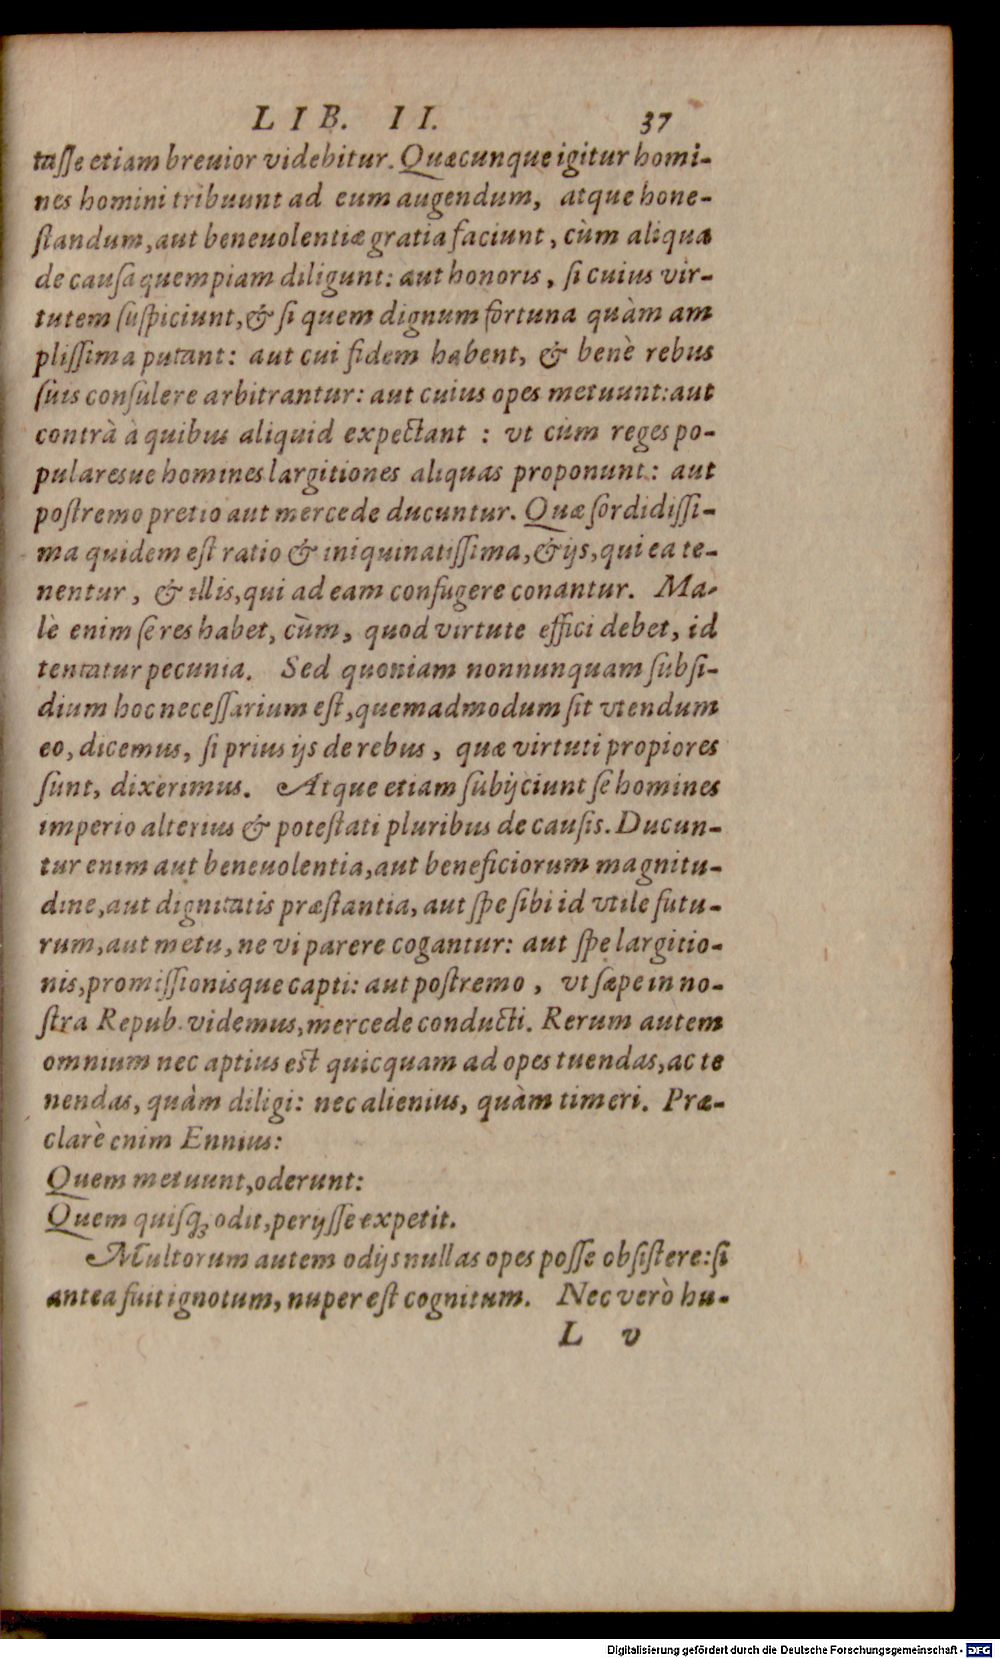 LIB. II. 37
taſſe etiam breuior videbitur. Quæcunque igitur homi-
nes homini tribuunt ad eum augendum, atque hone-
ſtandum, aut beneuolentiæ gratia faciunt, cùm aliqua
de cauſa quempiam diligunt: aut honoris, ſi cuius vir-
tutem ſuſpiciunt, & ſi quem dignum fortuna quàm am
pliſſima putant: aut cui fidem habent, & benè rebus
ſuis conſulere arbitrantur: aut cuius opes metuunt: aut
contrà à quibus aliquid expectant : vt cùm reges po-
pularesue homines largitiones aliquas proponunt: aut
poſtremo pretio aut mercede ducuntur. Quæ ſordidiſſi-
ma quidem eſt ratio & iniquinatiſſima, & ijs, qui ea te-
nentur, & illis, qui ad eam confugere conantur. Ma-
lè enim ſe res habet, cùm, quod virtute effici debet, id
tentatur pecunia. Sed quoniam nonnunquam ſubſi-
dium hoc neceſſarium eſt, quemadmodum ſit vtendum
eo, dicemus, ſi prius ijs de rebus, quæ virtuti propiores
ſunt, dixerimus. Atque etiam ſubijciunt ſe homines
imperio alterius & poteſtati pluribus de cauſis. Ducun-
tur enim aut beneuolentia, aut beneficiorum magnitu-
dine, aut dignitatis præſtantia, aut ſpe ſibi id vtile futu-
rum, aut metu, ne vi parere cogantur: aut ſpe largitio-
nis, promiſſionisque capti: aut poſtremo, vt ſæpe in no-
ſtra Repub. videmus, mercede conducti. Rerum autem
omnium nec aptius est quicquam ad opes tuendas, ac te
nendas, quàm diligi: nec alienius, quàm timeri. Præ-
clarè enim Ennius:
Quem metuunt, oderunt:
Quem quiſq; odit, perijſſe expetit.
Multorum autem odijs nullas opes poſſe obſiſtere: ſi
antea fuit ignotum, nuper eſt cognitum. Nec verò hu-
L v
Digitalisierung gefördert durch die Deutsche Forschungsgemeinschaft - DFG